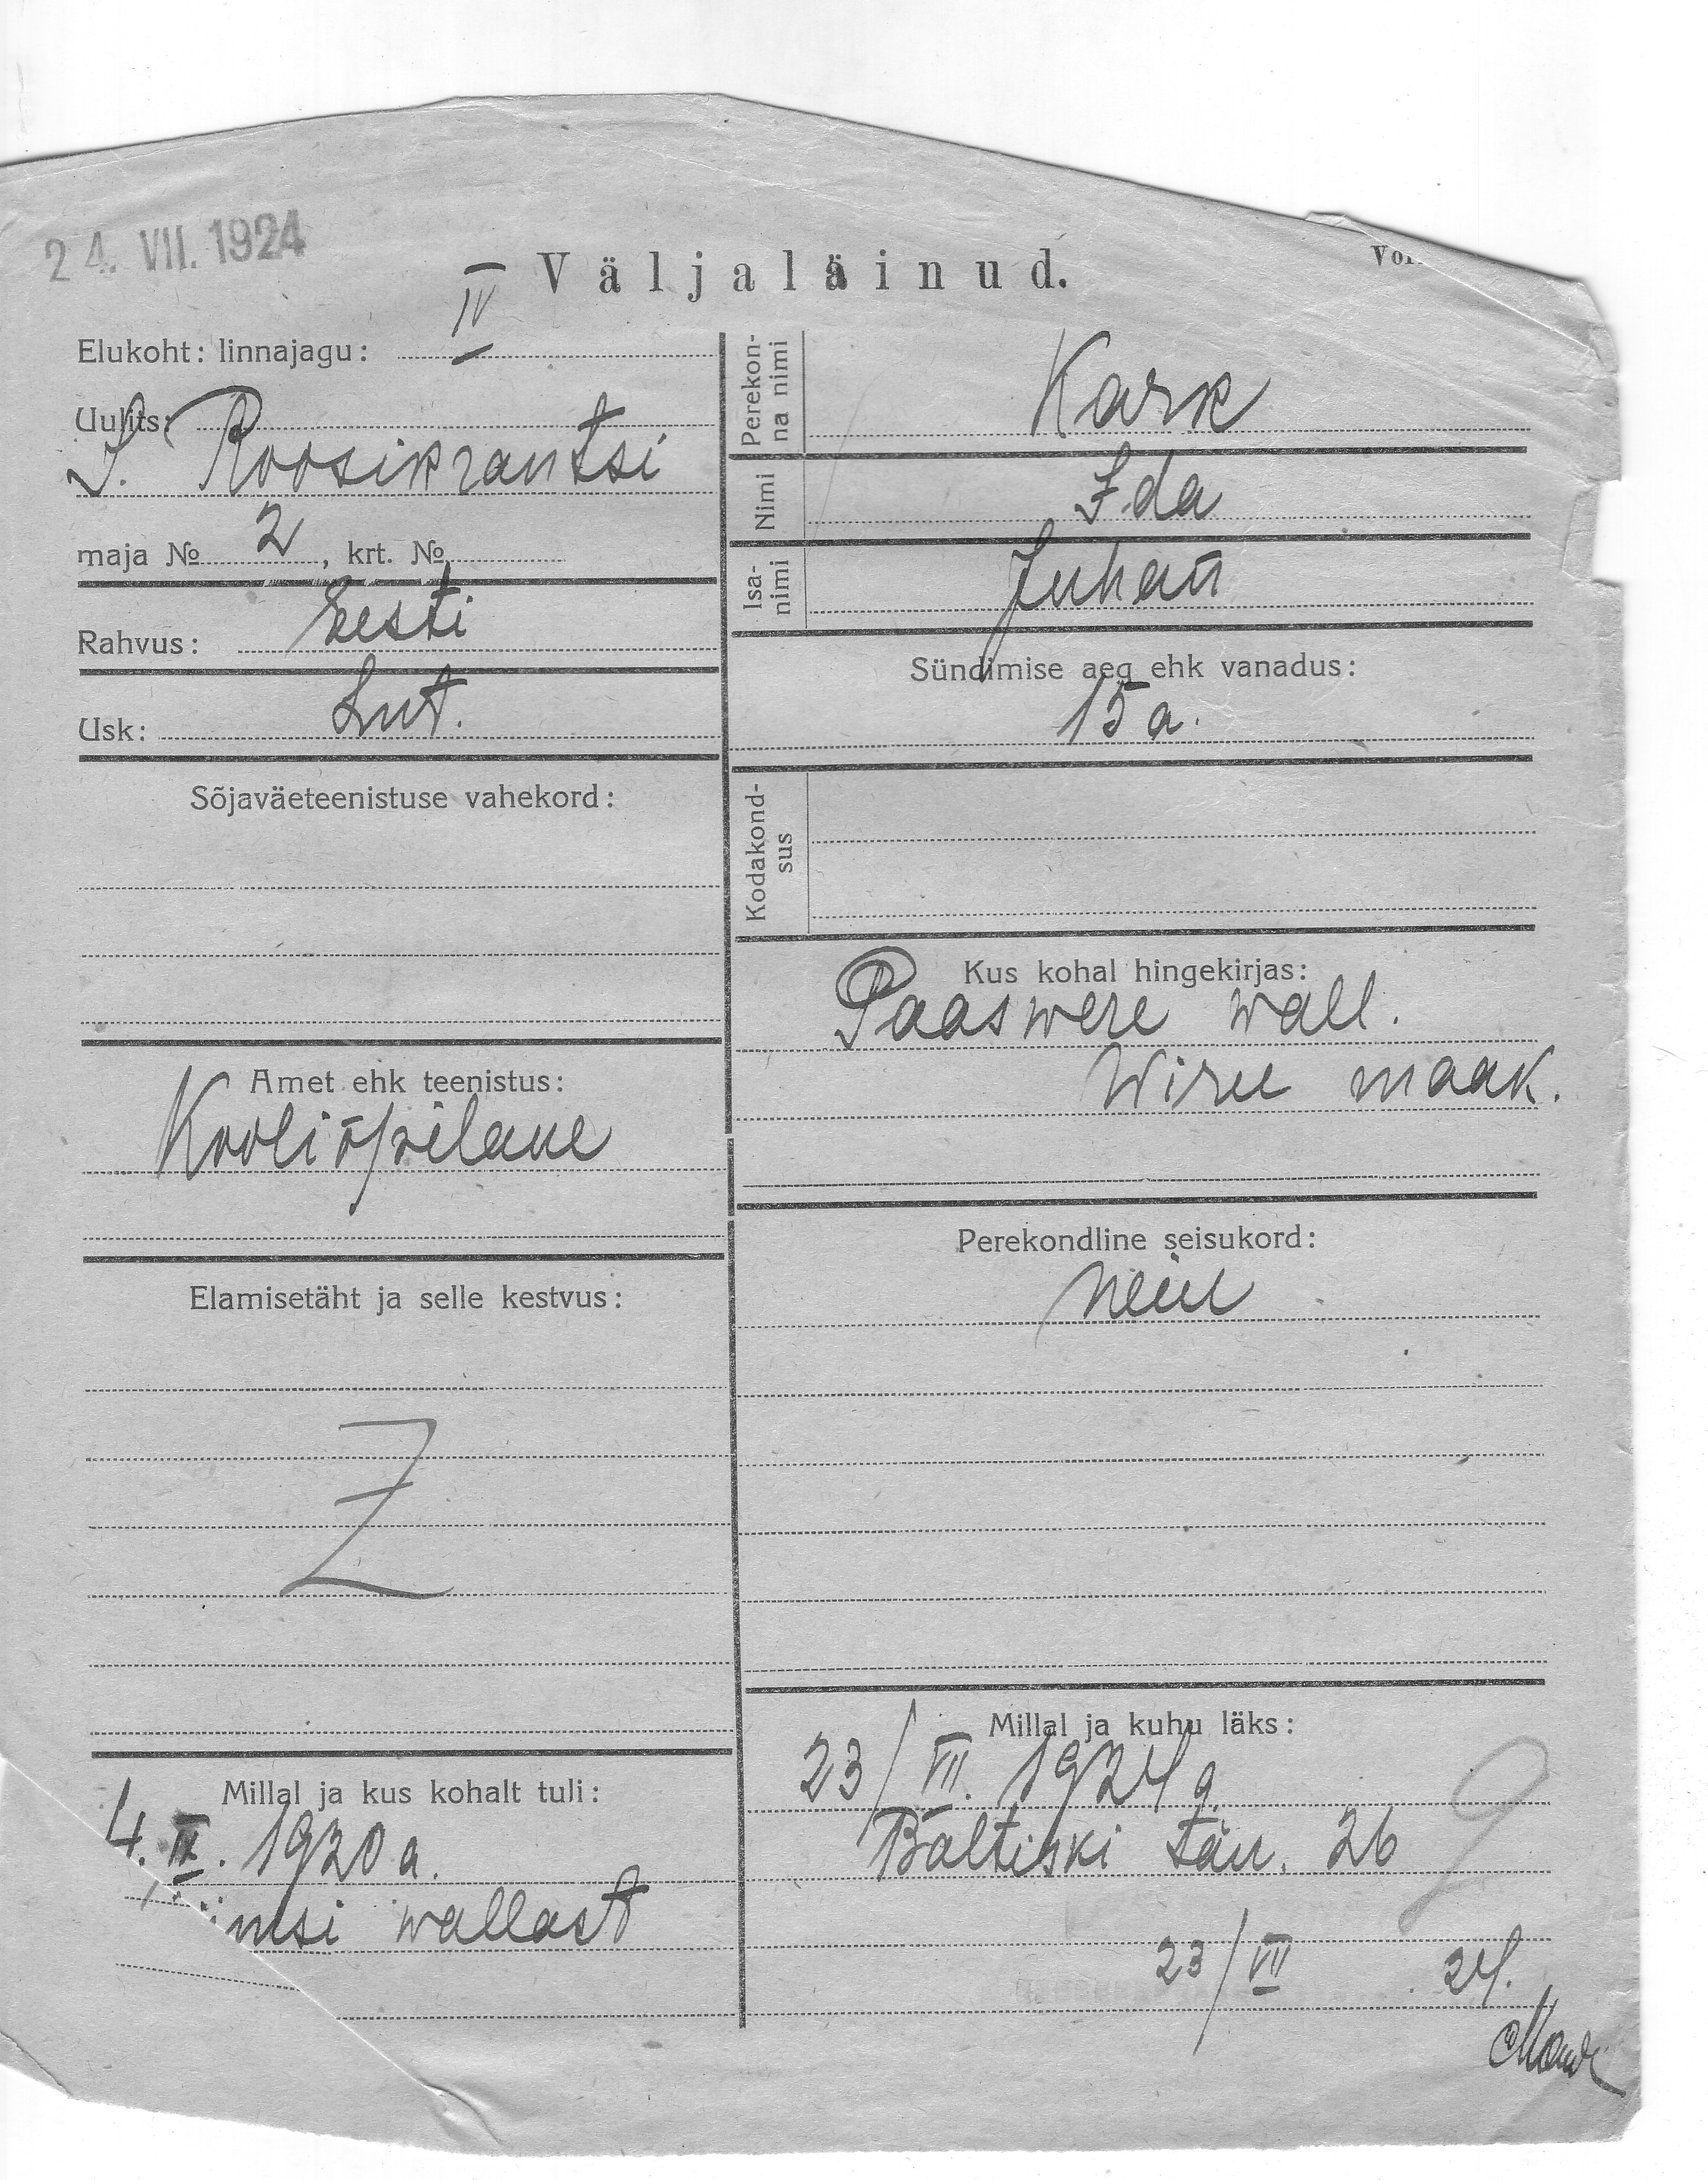 24. VII. 1924
Väljaläinud.
Elukoht: linnajagu: IV
Uulits:
S. Roosikrantsi
maja № 2, krt. №
Rahvus: Eesti
Usk: Lut.
Sõjaväeteenistuse vahekord:
Amet ehk teenistus:
Kooliõpilane
Elamisetäht ja selle kestvus:
Z
Millal ja kus kohalt tuli:
1920 a.
wallast
Perekon-
na nimi
Kark
Nimi
Ida
Isa-
nimi
Juhan
Sündimise aeg ehk vanadus:
15 a.
Kodakond-
sus
Kus kohal hingekirjas:
Paaswere wall.
Wiru maak.
Perekondline seisukord:
neiu
Millal ja kuhu läks:
23/VII. 1924 a.
Baltiski tän. 26
23/VII 24.